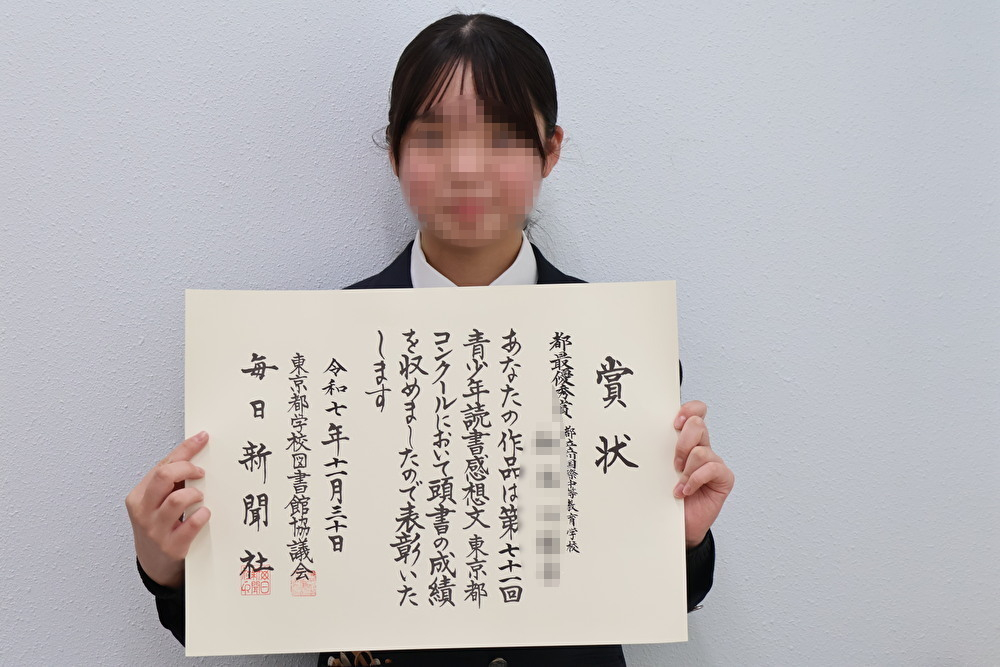 賞状
都最優秀賞
都立立川国際中等教育学校
あなたの作品は第七十一回
青少年読書感想文東京都
コンクールにおいて頭書の成績
を収めましたので表彰いた
します
令和七年十一月三十日
東京都学校図書館協議会
毎日新聞社